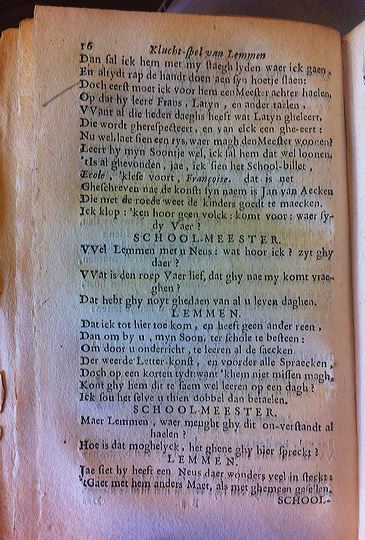 16 Klucht-spel van Lemmen
Dan sal ick hem met my staegh lyden waer ick gaen,
En altydt rap de handt doen aen syn hoetje slaen:
Doch eerst moet ick voor hem een Meester achter haelen,
Op dat hy leere Frans, Latyn, en ander taelen,
VVant al die heden daeghs heeft wat Latyn gheleert,
Die wordt gherespecteert, en van elck een ghe-eert:
Nu wel, laet sien een rys, waer magh den Meester woonen?
Leert hy mijn Soontje wel, ick sal hem dat wel loonen,
'tIs al ghevonden, jae, ick sien het School-billet,
Ecole, 'klese voort, Françoise. dat is net
Gheschreven nae de konst: syn naem is Jan van Aecken
Die met de roede weet de kinders goedt te maecken.
Ick klop: 'ken hoor geen volck: komt voor: waer sy-
dy Vaer?
SCHOOL-MEESTER.
VVel Lemmen met u Neus: wat hoor ick? zyt ghy
daer?
VVat is den roep Vaer lief, dat ghy nae my komt vrae-
ghen?
Dat hebt ghy noyt ghedaen van al u leven daghen.
LEMMEN.
Dat ick tot hier toe kom, en heeft geen ander reen,
Dan om by u, myn Soon, ter schole te besteen:
Om door u onderricht, te leeren al de saecken
Der weerde Letter-konst, en voorder alle Spraecken,
Doch op een korten tydt: want 'k hem niet missen magh,
Kont ghy hem dit te saem wel leeren op een dagh?
Ick sou het selve u thien dobbel dan betaelen.
SCHOOL-MEESTER.
Maer Lemmen, waer meught ghy dit on-verstandt al
haelen?
Hoe is dat moghelyck, het ghene ghy hier spreckt?
LEMMEN.
Jae siet hy heeft een Neus daer wonders veel in steckt:
'tGaet met hem anders Maet, als met ghemeen gesellen.
SCHOOL-